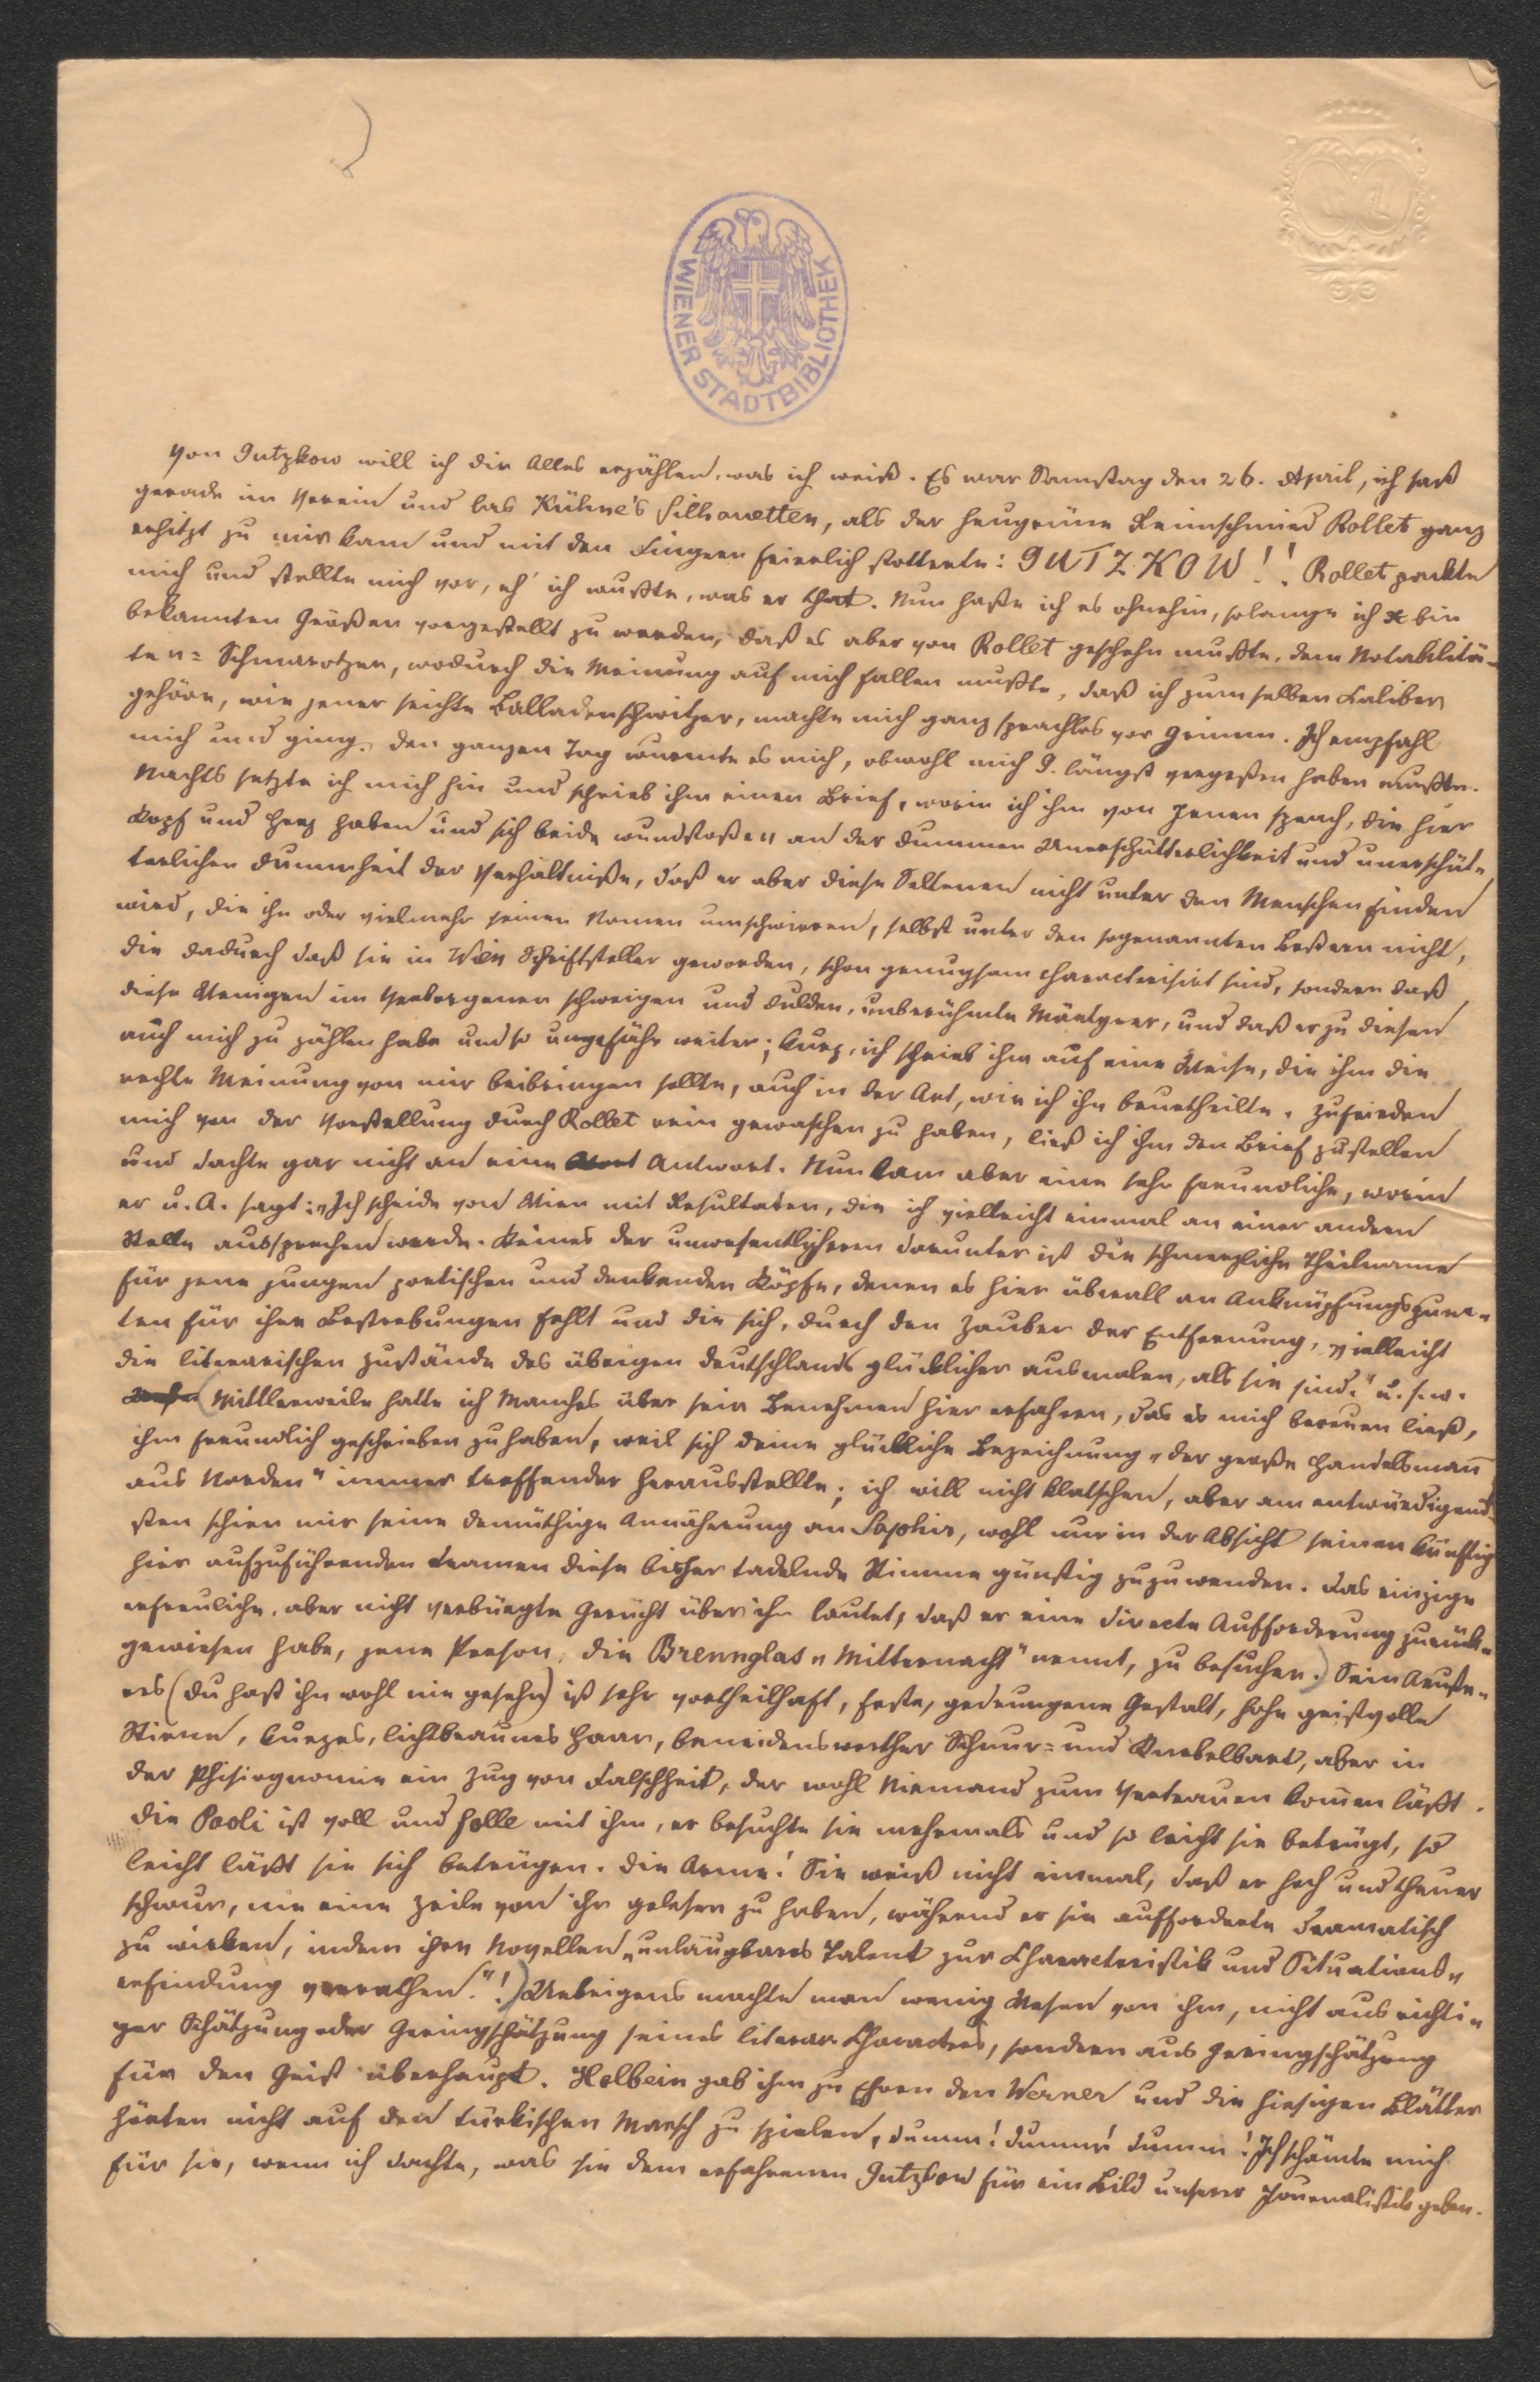 WIENER STADTBIBLIOTHEK
Von Gutzkow will ich dir Alles erzählen, was ich weiß. Es war Samstag den 26. April, ich saß
gerade im Verein und las Kühne's Silhouetten, als der heugrüne Reimschmied Rollet ganz
erhitzt zu mir kam und mit den Fingern feierlich stotterte: GUTZKOW!! Rollet packte
mich und stellte mich vor, eh' ich wußte, was er that. Nun haße ich es ohnehin, solange ich x bin
bekannten Größen vorgestellt zu werden, daß es aber von Rollet geschehn mußte, dem Notabilitä-
ten= Schmarotzer, wodurch die Meinung auf mich fallen mußte, daß ich zum selben Caliber
gehöre, wie jener seichte Balladenschwitzer, machte mich ganz sprachlos vor Grimm. Ich empfahl
mich und ging. Den ganzen Tag wurmte es mich, obwohl mich G. längst vergeßen haben mußte.
Nachts setzte ich mich hin und schrieb ihm einen Brief, worin ich ihm von Jenen sprach, die hier
Kopf und Herz haben und sich beide wundstoßen an der dummen Unerschütterlichkeit und unerschüt-
terlichen Dummheit der Verhältniße, daß er aber diese Seltenen nicht unter den Menschen finden
wird, die ihn oder vielmehr seinen Namen umschwirren, selbst unter den sogenannten Beßern nicht,
die dadurch daß sie in Wien Schriftsteller geworden, schon genugsam characterisirt sind, sondern daß
diese Wenigen im Verborgenen schweigen und dulden, unberühmte Märtyrer, und daß er zu diesen
auch mich zu zählen habe und so ungefähr weiter; kurz, ich schrieb ihm auf eine Weise, die ihm die
rechte Meinung von mir beibringen sollte, auch in der Art, wie ich ihn beurtheilte. Zufrieden
mich von der Vorstellung durch Rollet rein gewaschen zu haben, ließ ich ihm den Brief zustellen
und dachte gar nicht an eine Antwort. Nun kam aber eine sehr freundliche, worin
er u. A. sagt: „Ich scheide von Wien mit Resultaten, die ich vielleicht einmal an einer andern
Stelle aussprechen werde. Keines der unwesentlichern darunter ist die schmerzliche Theilname
für jene jungen poetischen und denkenden Köpfe, denen es hier überall an Anknüpfungspunk-
ten für ihre Bestrebungen fehlt und die sich, durch den Zauber der Entfernung, vielleicht
die literarischen Zustände des übrigen Deutschlands glücklicher ausmalen, als sie sind." u. s. w.
(Mittlerweile hatte ich Manches über sein Benehmen hier erfahren, das es mich bereuen ließ,
ihm freundlich geschrieben zu haben, weil sich deine glückliche Bezeichnung „der große Handelsmañ
aus Norden" immer treffender herausstellte; ich will nicht klatschen, aber am entwürdigend-
sten schien mir seine demüthige Annäherung an Saphir, wohl nur in der Absicht seinen künftig
hier aufzuführenden Dramen diese bisher tadelnde Stimme günstig zuzuwenden. Das einzige
erfreuliche, aber nicht verbürgte Gerücht über ihn lautet, daß er eine directe Aufforderung zurück-
gewiesen habe, jene Person, die Brennglas „Mitternacht" nennt, zu besuchen.) Sein Aeuße-
res (du hast ihn wohl nie gesehn) ist sehr vortheilhaft, feste, gedrungene Gestalt, hohe geistvolle
Stirne, kurzes, lichtbraunes Haar, beneidenswerther Schnur= und Knebelbart, aber in
der Phisiognomie ein Zug von Falschheit, der wohl Niemand zum Vertrauen kom̄en läßt.
Die Paoli ist voll und holle mit ihm, er besuchte sie mehrmals und so leicht sie betrügt, so
leicht läßt sie sich betrügen. Die Arme! Sie weiß nicht einmal, daß er hoch und theuer
schwur, nie eine Zeile von ihr gelesen zu haben, während er sie aufforderte dramatisch
zu wirken, indem ihre Novellen „unläugbares Talent zur Characteristik und Situations-
erfindung verrathen."!) Uebrigens machte man wenig Wesen von ihm, nicht aus richti-
ger Schätzung oder Geringschätzung seines literar. Characters, sondern aus Geringschätzung
für den Geist überhaupt. Holbein gab ihm zu Ehren den Werner und die hiesigen Blätter
hörten nicht auf den türkischen Marsch zu spielen, dumm! dumm! dumm! Ich schämte mich
für sie, wenn ich dachte, was sie dem erfahrenen Gutzkow für ein Bild unserer Journalistik geben.